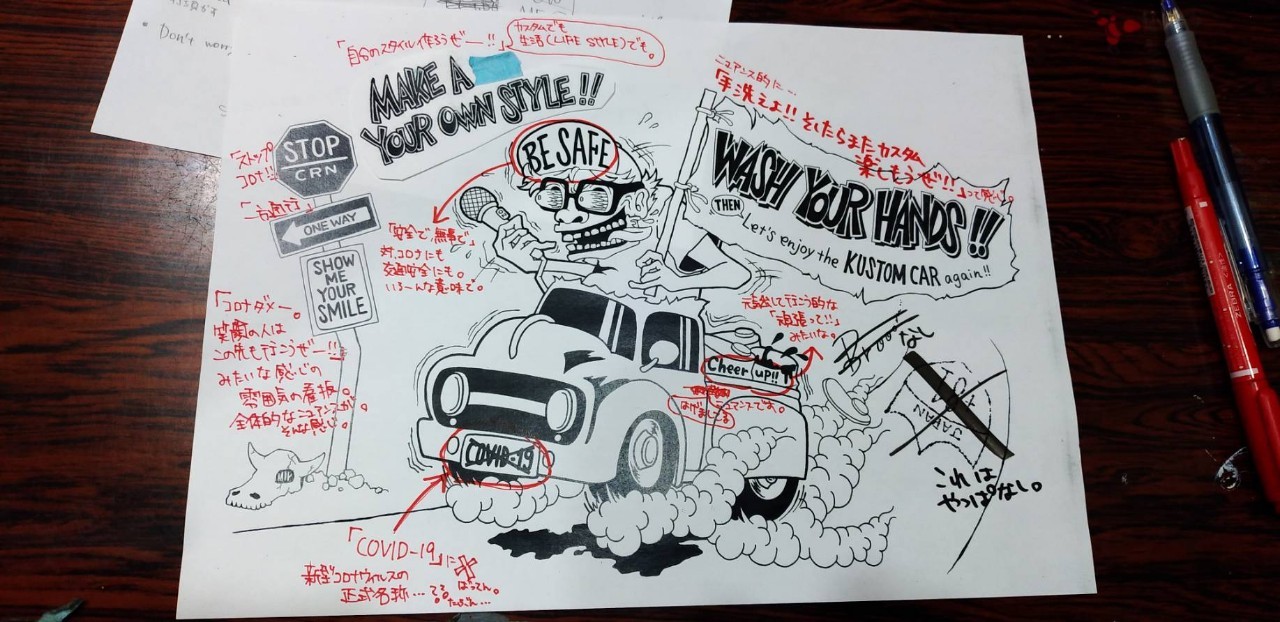 • Don't worr
「自分のスタイル作ろうぜー!!」
カスタムでも
生活(LIFE STYLE)でも。
MAKE A
YOUR OWN STYLE!!
ニュアンス的に…
「手洗えよ!! そしたらまたカスタム
楽しもうぜ!!」って感じ。
WASH YOUR HANDS!!
THEN Let's enjoy the KUSTOM CAR again!!
BE SAFE
「ストップ
コロナ!!」
STOP
CRN
「一方通行」
ONE WAY
SHOW
ME
YOUR
SMILE
「安全で、無事で」
対コロナにも
交通安全にも。
いろーんな意味で。
「コロナダメー。
笑顔の人は
この先も行こうぜー!!」
みたいな感じの
雰囲気の看板。
全体的なニュアンスが。
そんな感じ。
元気出して行こう的な
「頑張って!!」
みたいな。
Cheer up!!
はげましてる
ニュアンスでよ。
なし
JAPAN
これは
やっぱなし。
COVID-19
「COVID-19」に×
ばってん。
新型コロナウィルスの
正式名称…
たぶん…
ZEBRA